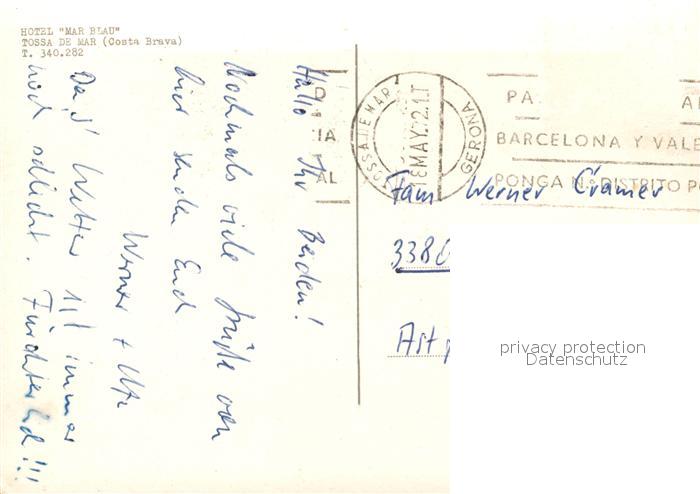 HOTEL "MAR BLAU"
TOSSA DE MAR (Costa Brava)
T. 340.282
Hallo Ihr Beiden!
Nochmals viele Grüße von
hier senden Euch
Werner + Ute
Das Wetter ist immer
noch schlecht. Fürchterlich!!!
TOSSA DE MAR
18 MAY. 72.1.T
GERONA
IA
AL
PA
BARCELONA Y VALE
PONGA N.º DISTRITO PO
Fam Werner Cramer
3380
Ast
privacy protection
Datenschutz